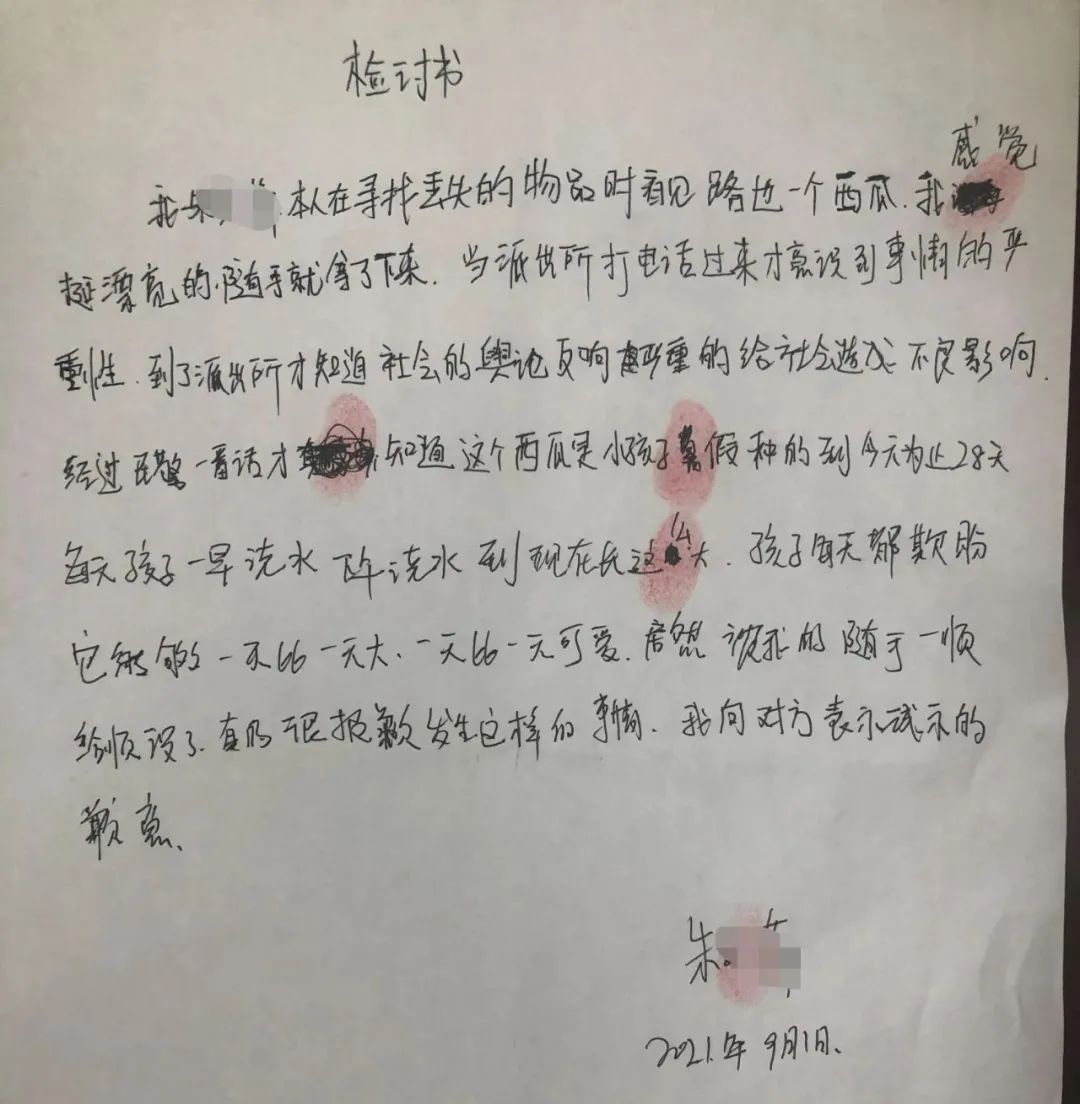 检讨书
感觉
我朱 本人在寻找丢失的物品时看见路边一个西瓜.我
挺漂亮的.随手就拿了下来.当派出所打电话过来才意识到事情的严
重性.到了派出所才知道社会的舆论反响严重的给社会造成不良影响.
经过民警一番话才知道这个西瓜是小孩子暑假种的到今天为止28天
每天孩子一早浇水下午浇水到现在长这么大.孩子每天都期盼
它能够一天比一天大、一天比一天可爱.居然被我的随手一顺
给顺没了.真的很报歉发生这样的事情.我向对方表示诚示的
歉意、
朱
2021.年9月1日.